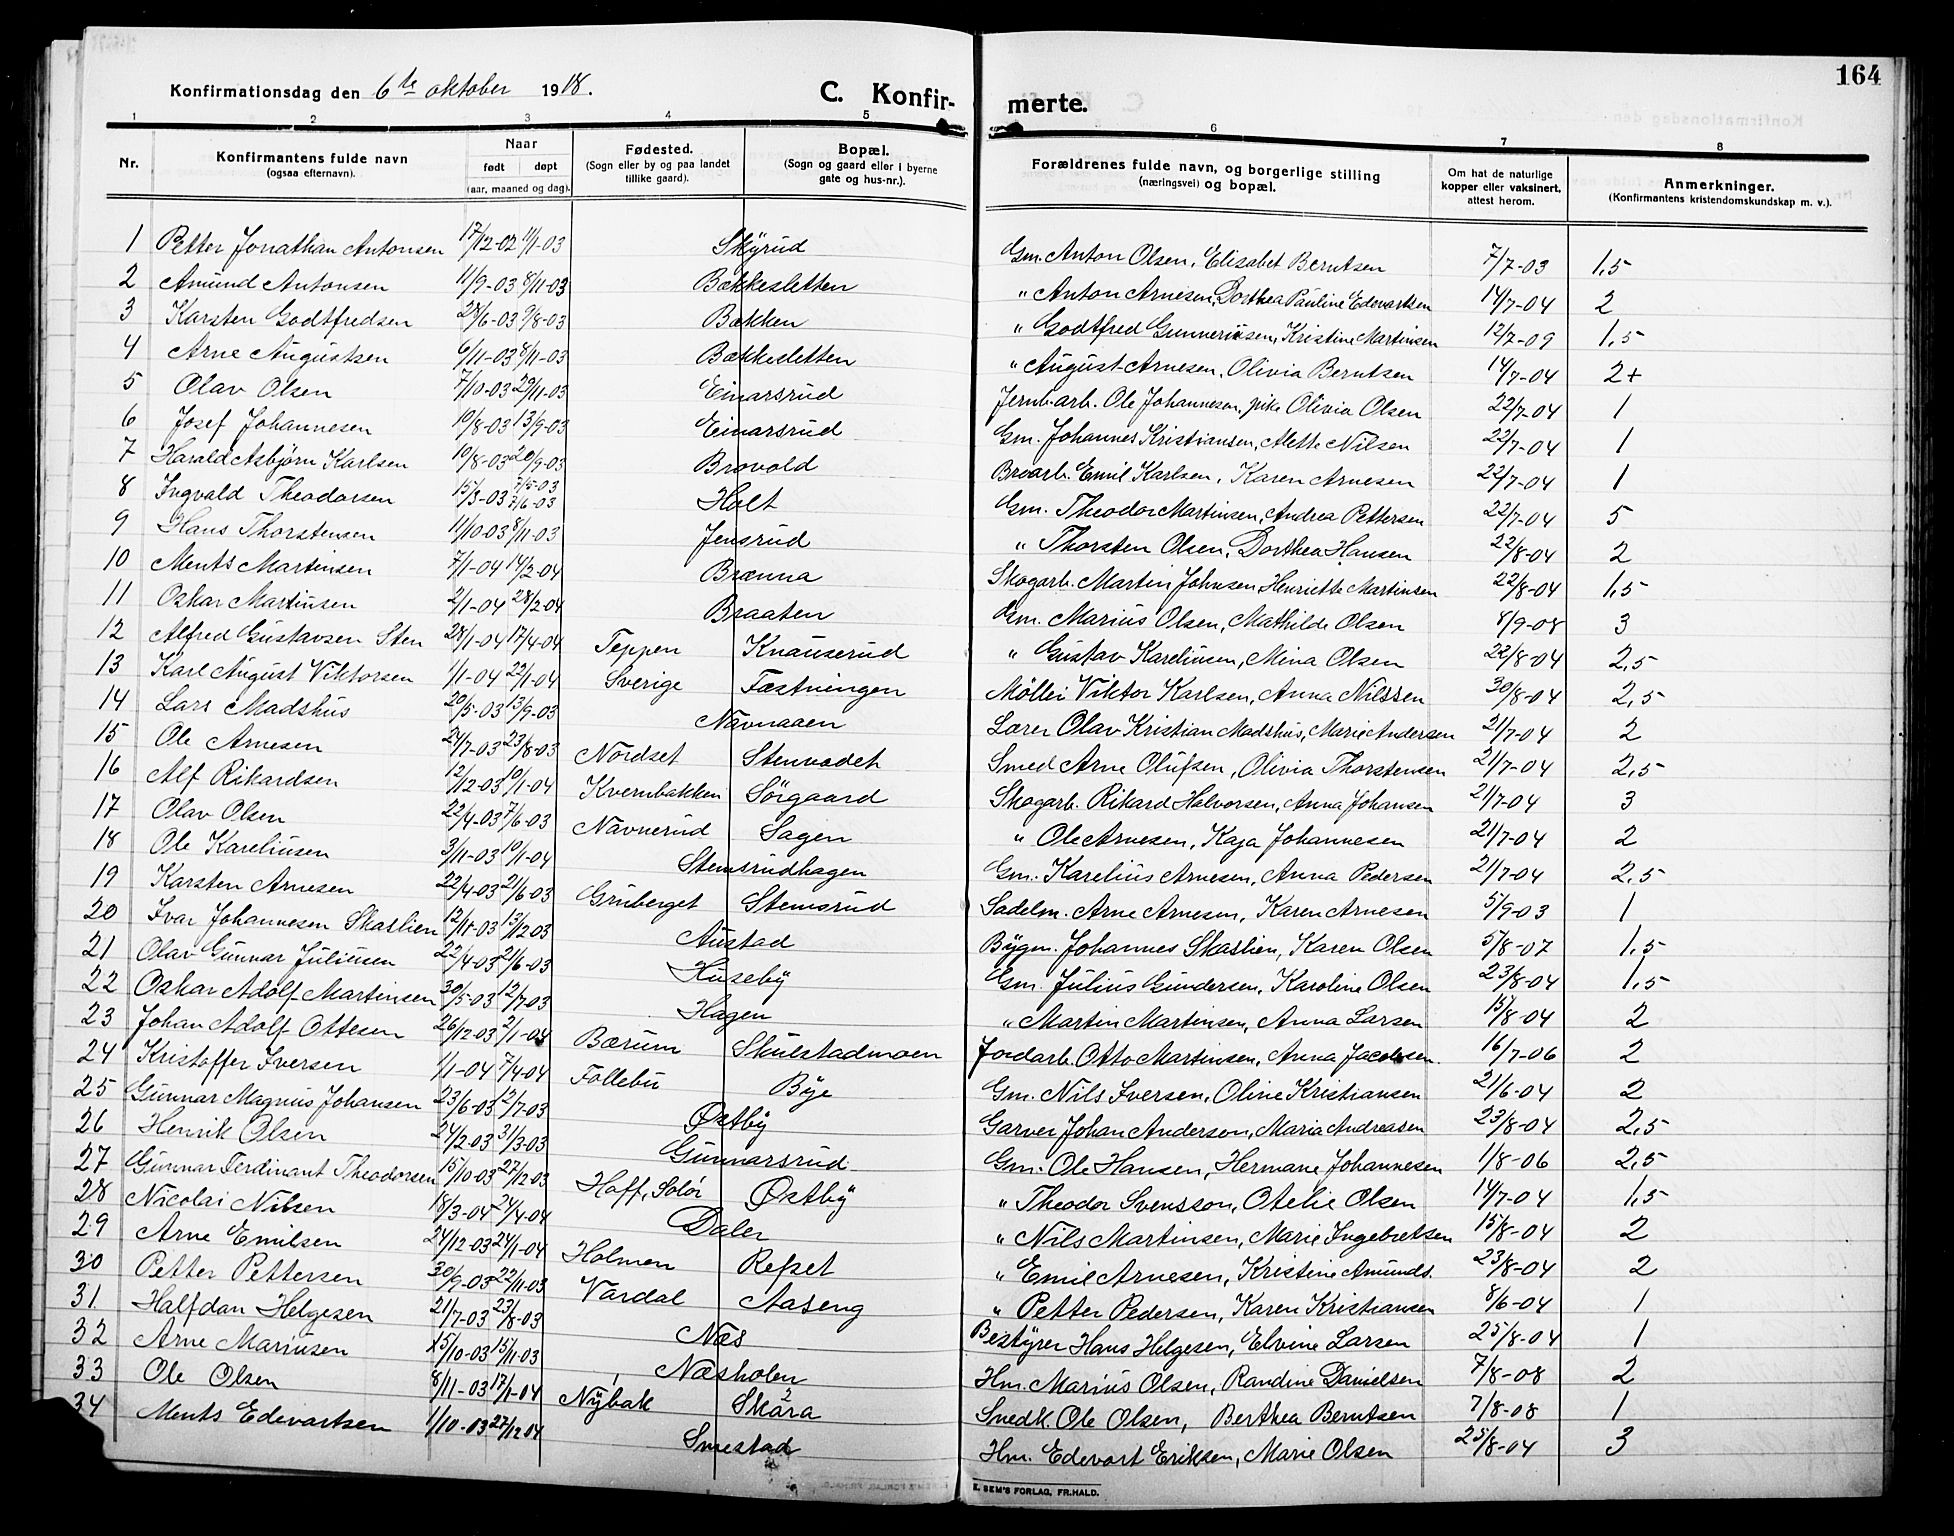 164
Konfirmationsdag den 6te oktober 1918.
C. Konfirmerte.
1 2 3 4 5 6 7 8
Nr. Konfirmantens fulde navn (ogsaa efternavn). Naar født døpt (aar, maaned og dag). Fødested. (Sogn eller by og paa landet tillike gaard). Bopæl. (Sogn og gaard eller i byerne gate og hus-nr.). Forældrenes fulde navn, og borgerlige stilling (næringsvei) og bopæl. Om hat de naturlige kopper eller vaksinert, attest herom. Anmerkninger. (Konfirmantens kristendomskundskap m. v.).
1 Petter Jonathan Antonsen 17/12-02 11/1-03 Skyrud Gm. Anton Olsen, Elisabet Berntsen 7/7-03 1,5
2 Amund Antonsen 11/9-03 8/11-03 Bækkesletten " Anton Arnesen, Dorthea Pauline Edevartsen 14/7-04 2
3 Karsten Godtfredsen 28/6-03 9/8-03 Bækken " Godtfred Gunneriusen, Kristine Martinsen 12/7-09 1,5
4 Arne Augustsen 6/11-03 8/11-03 Bækkesletten " August Arnesen, Olivia Berntsen 14/7-04 2+
5 Olav Olsen 7/10-03 29/11-03 Einarsrud Jernb.arb. Ole Johannesen, pike Olivia Olsen 22/7-04 1
6 Josef Johannesen 10/8-03 13/9-03 Einarsrud Gm. Johannes Kristiansen, Mette Nilsen 22/7-04 1
7 Harald Asbjørn Karlsen 10/8-03 20/9-03 Brovold Broarb. Emil Karlsen, Karen Arnesen 22/7-04 1
8 Ingvald Theodorsen 15/3-03 7/5-03 7/6-03 Holt Gm. Theodor Martinsen, Andrea Pettersen 22/7-04 5
9 Hans Thorstensen 11/10-03 8/11-03 Jensrud " Thorsten Olsen, Dorthea Hansen 22/8-04 2
10 Ments Martinsen 7/1-04 14/2-04 Brænna Skogarb. Martin Johnsen, Henriette Martinsen 22/8-04 1,5
11 Oskar Martinsen 2/1-04 28/2-04 Braaten Gm. Marius Olsen, Mathilde Olsen 8/9-08 3
12 Alfred Gustavsen Sten 28/1-04 17/4-04 Teppen Knauserud " Gustav Kareliusen, Mina Olsen 22/8-04 2,5
13 Karl August Viktorsen 1/1-04 22/1-04 Sverige Fæstningen Møller Viktor Karlsen, Anna Nilssen 30/8-04 2,5
14 Lars Madshus 20/5-03 13/9-03 Navnaaen Lærer Olav Kristian Madshus, Marie Andersen 21/7-04 2
15 Ole Arnesen 24/7-03 23/8-03 Nordset Stenvadet Smed Arne Olufsen, Olivia Thorstensen 21/7-04 2,5
16 Alf Rikardsen 12/12-03 10/1-04 Kvernbakken Sørgaard Skogarb. Rikard Halvorsen, Anna Johansen 21/7-04 3
17 Olav Olsen 22/4-03 7/6-03 Navnerud Sagen " Ole Arnesen, Kaja Johannesen 21/7-04 2
18 Ole Kareliusen 3/11-03 10/1-04 Stemsrudhagen Gm. Karelius Arnesen, Anna Pedersen 21/7-04 2,5
19 Karsten Arnesen 22/4-03 21/6-03 Gruberget Stemsrud Sadelm. Arne Arnesen, Karen Arnesen 5/9-03 1
20 Ivar Johannesen Skaslien 12/11-03 13/12 03 Austad Bygm. Johannes Skaslien, Karen Olsen 5/8-07 1,5
21 Olav Gunnar Juliusen 22/4-03 21/6-03 Huseby Gm. Julius Gundersen, Karoline Olsen 23/8-04 1,5
22 Oskar Adolf Martinsen 30/5-03 12/7-03 Hagen " Martin Martinsen, Anna Larsen 15/8-04 2
23 Johan Adolf Ottesen 26/12-03 2/1-04 Bærum Skulstadmoen Jordarb. Otto Martinsen, Anna Jacobsen 16/7-06 2
24 Kristoffer Iversen 1/1-04 7/4-04 Follebu Bye Gm. Nils Iversen, Oline Kristiansen 21/6-04 2
25 Gunnar Magnus Johansen 23/6-03 12/7-03 Østby Garver Johan Anderson, Maria Andreasen 23/8-04 2,5
26 Henrik Olsen 24/2-03 31/3-03 Gunnarsrud Gm. Ole Hansen, Hermane Johannesen 1/8-06 2,5
27 Gunnar Ferdinant Theodorsen 15/10-03 27/12-03 Hoff, Solør Østby " Theodor Svensson, Otelie Olsen 14/7-04 1,5
28 Nicolai Nilsen 18/3-04 24/4-04 Daler " Nils Martinsen, Marie Ingebretsen 15/8-04 2
29 Arne Emilsen 24/12-03 24/1-04 Holmen Refset " Emil Arnesen, Kristine Amunds. 23/8-04 2
30 Petter Pettersen 30/9-03 22/11-03 Vardal Aaseng " Petter Pedersen, Karen Kristiansen 8/6-04 1
31 Halfdan Helgesen 21/7-03 23/8-03 Næs Bestyrer Hans Helgesen, Elvine Larsen 25/8-04 1
32 Arne Mariusen 15/10-03 15/11-03 Næsholen Hm. Marius Olsen, Randine Danielsen 7/8-08 2
33 Ole Olsen 8/11-03 17/1-04 Nybak Skara Snedk. Ole Olsen, Berthea Berntsen 7/8-08 1
34 Ments Edevartsen 1/10-03 27/12 04 Smestad Hm. Edevart Eriksen, Marie Olsen 25/8-04 3
E. SEM'S FORLAG, FR.HALD.